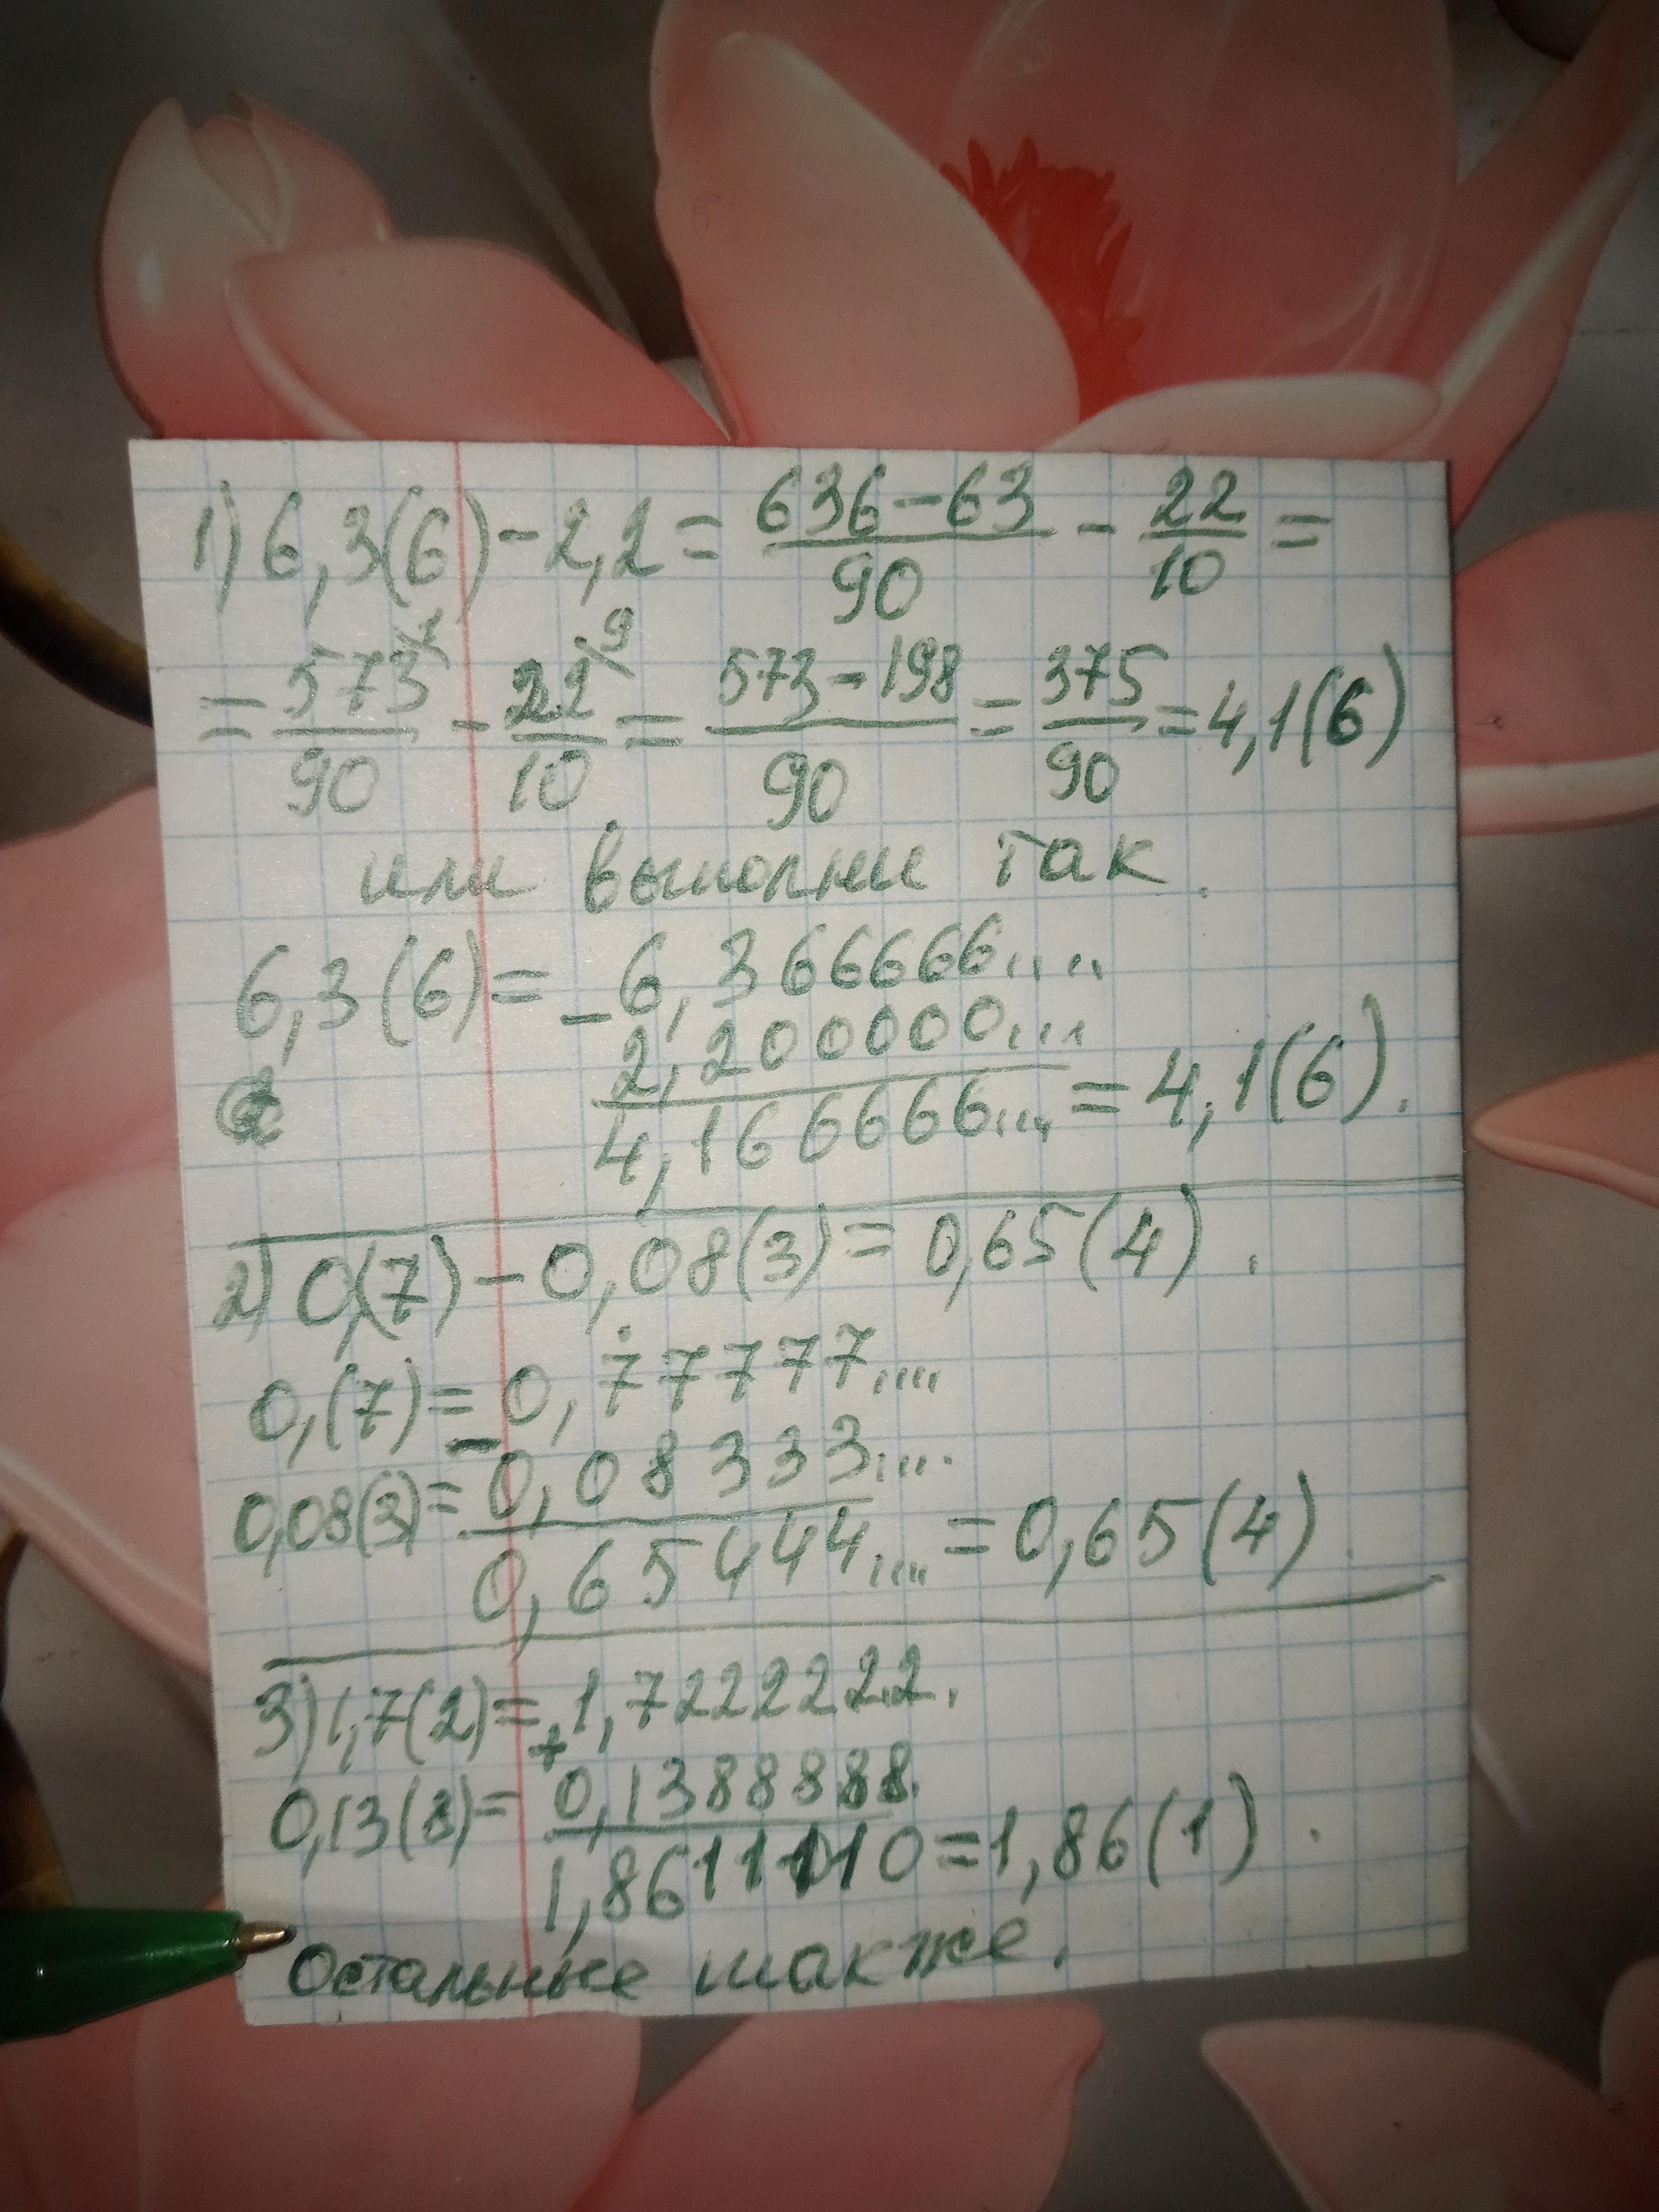 1) 6,3(6) - 2,2 = (636-63)/90 - 22/10 =
= 573/90 - 22/10 = (573-198)/90 = 375/90 = 4,1(6)
или выполни так.
6,3(6) = 6,366666....
- 2,200000...
4,166666... = 4,1(6).
2) 0,(7) - 0,08(3) = 0,65(4).
0,(7) = 0,77777....
- 0,08(3) = 0,08333....
0,65444.... = 0,65(4)
3) 1,7(2) = 1,7222222.
+ 0,13(8) = 0,1388888.
1,8611110 = 1,86(1).
Остальные также.